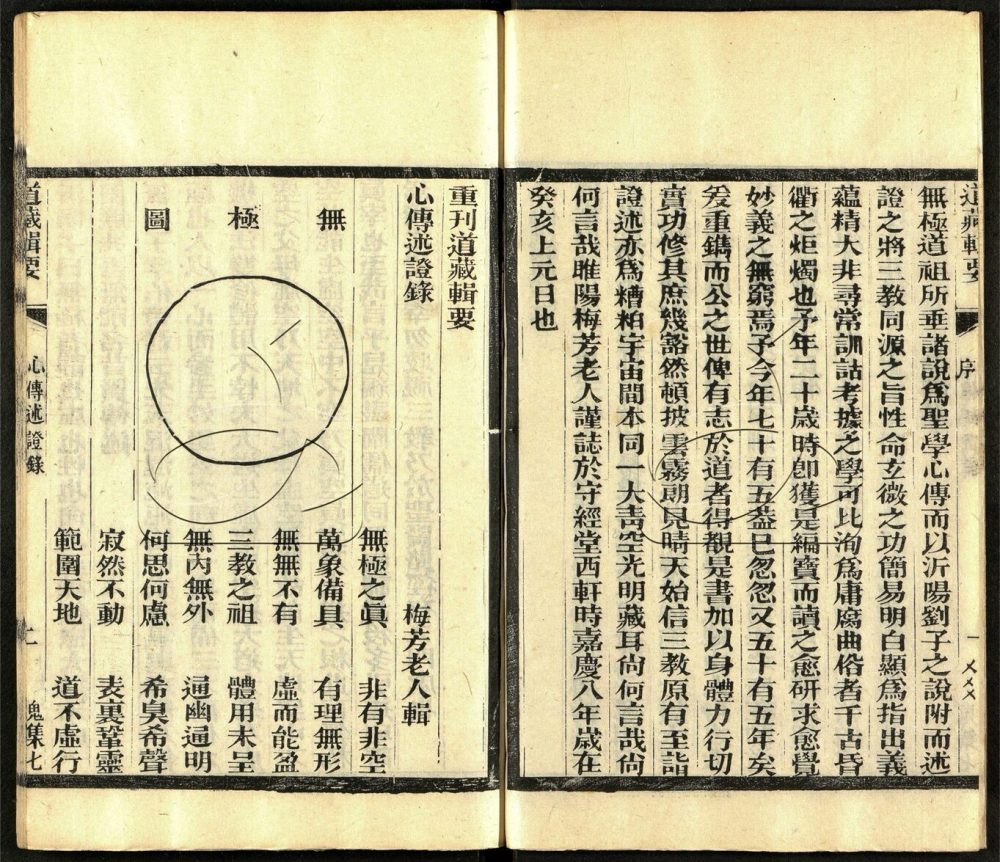 道藏輯要
序
一
無極道祖所垂諸說爲聖學心傳而以沂陽劉子之說附而述
證之將三教同源之旨性命玄微之功簡易明白顯爲指出義
蘊精大非尋常訓詁考據之學可比洵爲庸腐曲俗者千古昏
衢之炬燭也予年二十歲時卽獲是編寶而讀之愈研求愈覺
妙義之無窮焉予今年七十有五葢已忽忽又五十有五年矣
爰重鐫而公之世俾有志於道者得觀是書加以身體力行切
實功修其庶幾豁然頓披雲霧朗見晴天始信三教原有至詣
證述亦爲糟粕宇宙間本同一大靑空光明藏耳尙何言哉尙
何言哉睢陽梅芳老人謹誌於守經堂西軒時嘉慶八年歲在
癸亥上元日也
重刊道藏輯要
心傳述證錄
梅芳老人輯
無極圖
無極之眞 非有非空
萬象備具 有理無形
無無不有 虛而能盈
三教之祖 體用未呈
無內無外 通幽通明
何思何慮 希臭希聲
寂然不動 表裏鞏靈
範圍天地 道不虛行
道藏輯要
心傳述證錄
鬼集七